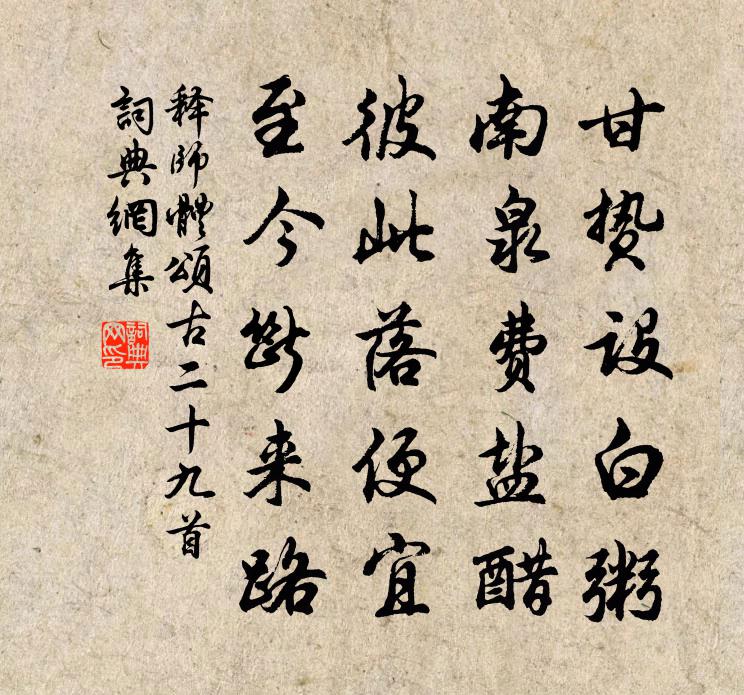 甘贽设白粥
南泉费盐醋
彼此落便宜
至今断来路
释师體頌古二十九首
詞典網集
詞典网印